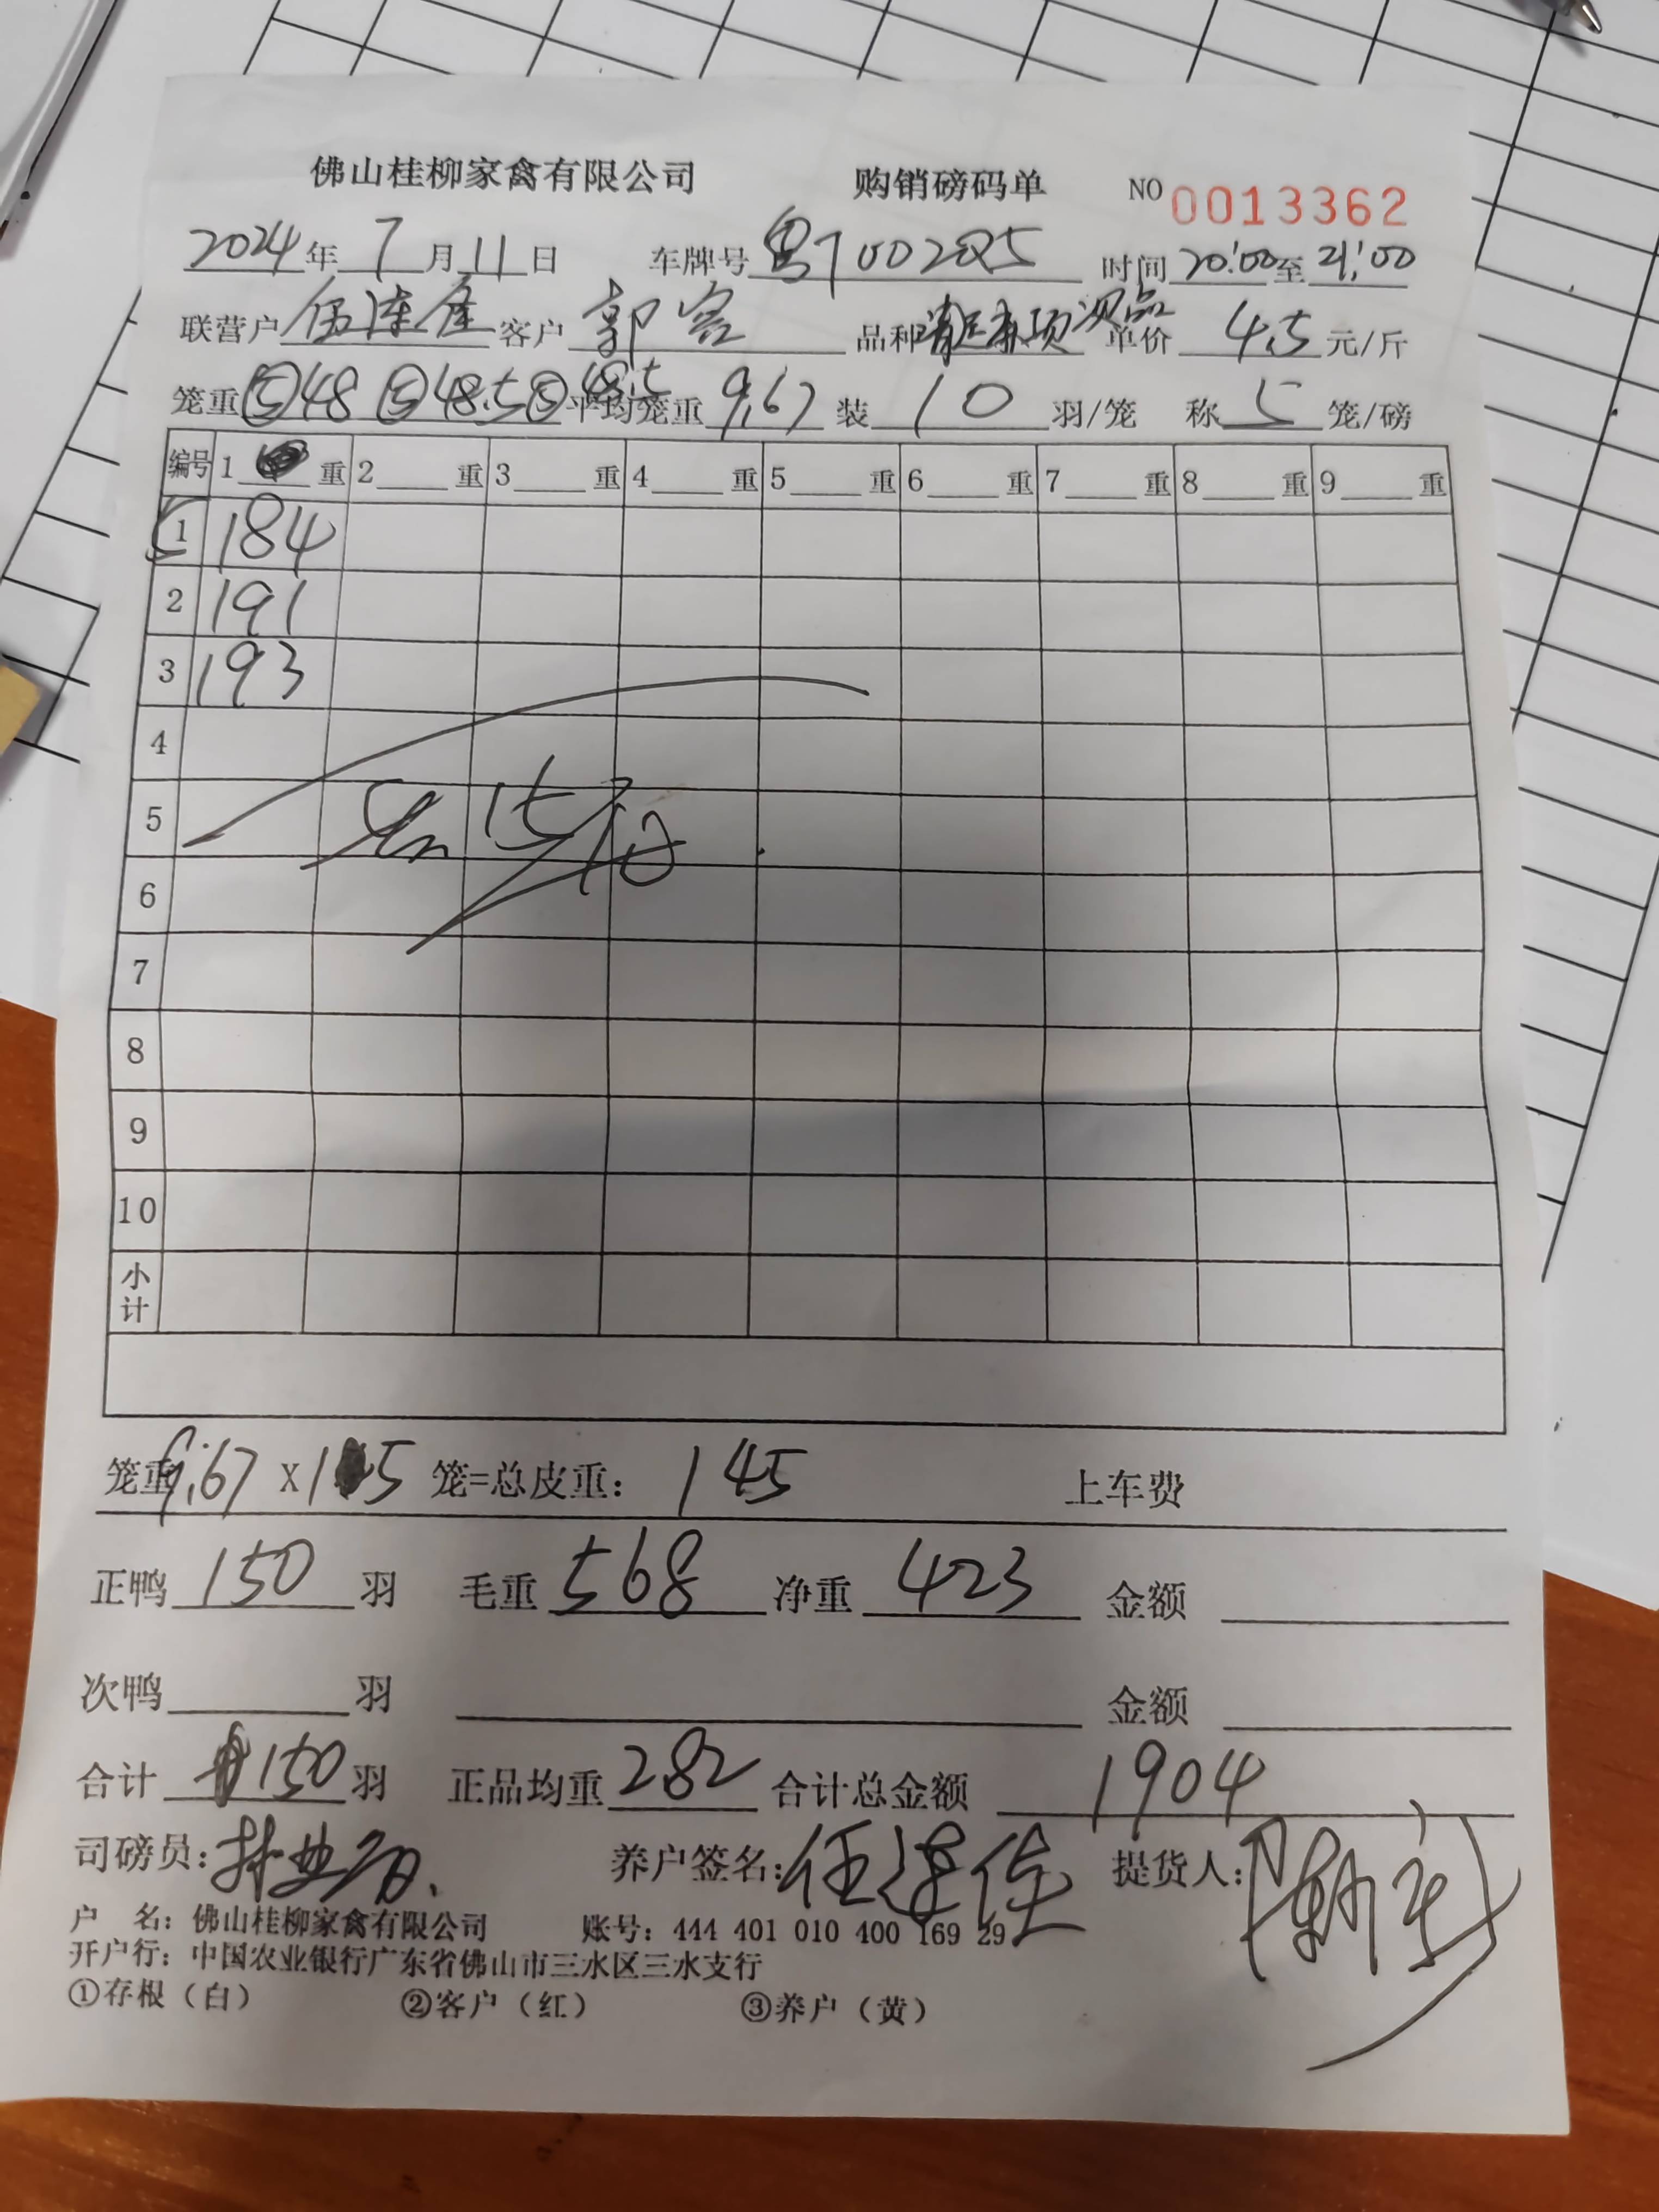 佛山桂柳家禽有限公司 购销磅码单 NO 0013362
2024年7月11日 车牌号 时间 20:00至21:00
联营户 客户 郭容 品种 次品 单价 4.5 元/斤
笼重 ⑤48 ⑤48.5 ⑤48.5 平均笼重 9.67 装 10 羽/笼 称 5 笼/磅
编号 1 重 2 重 3 重 4 重 5 重 6 重 7 重 8 重 9 重
1 184
2 191
3 193
4
5
6
7
8
9
10
小计
共15
笼重 9.67 X 15 笼=总皮重: 145 上车费
正鸭 150 羽 毛重 568 净重 423 金额
次鸭 羽 金额
合计 150 羽 正品均重 2.82 合计总金额 1904
司磅员: 养户签名: 提货人:
户 名: 佛山桂柳家禽有限公司 账号: 444 401 010 400 169 29
开户行: 中国农业银行广东省佛山市三水区三水支行
①存根（白） ②客户（红） ③养户（黄）